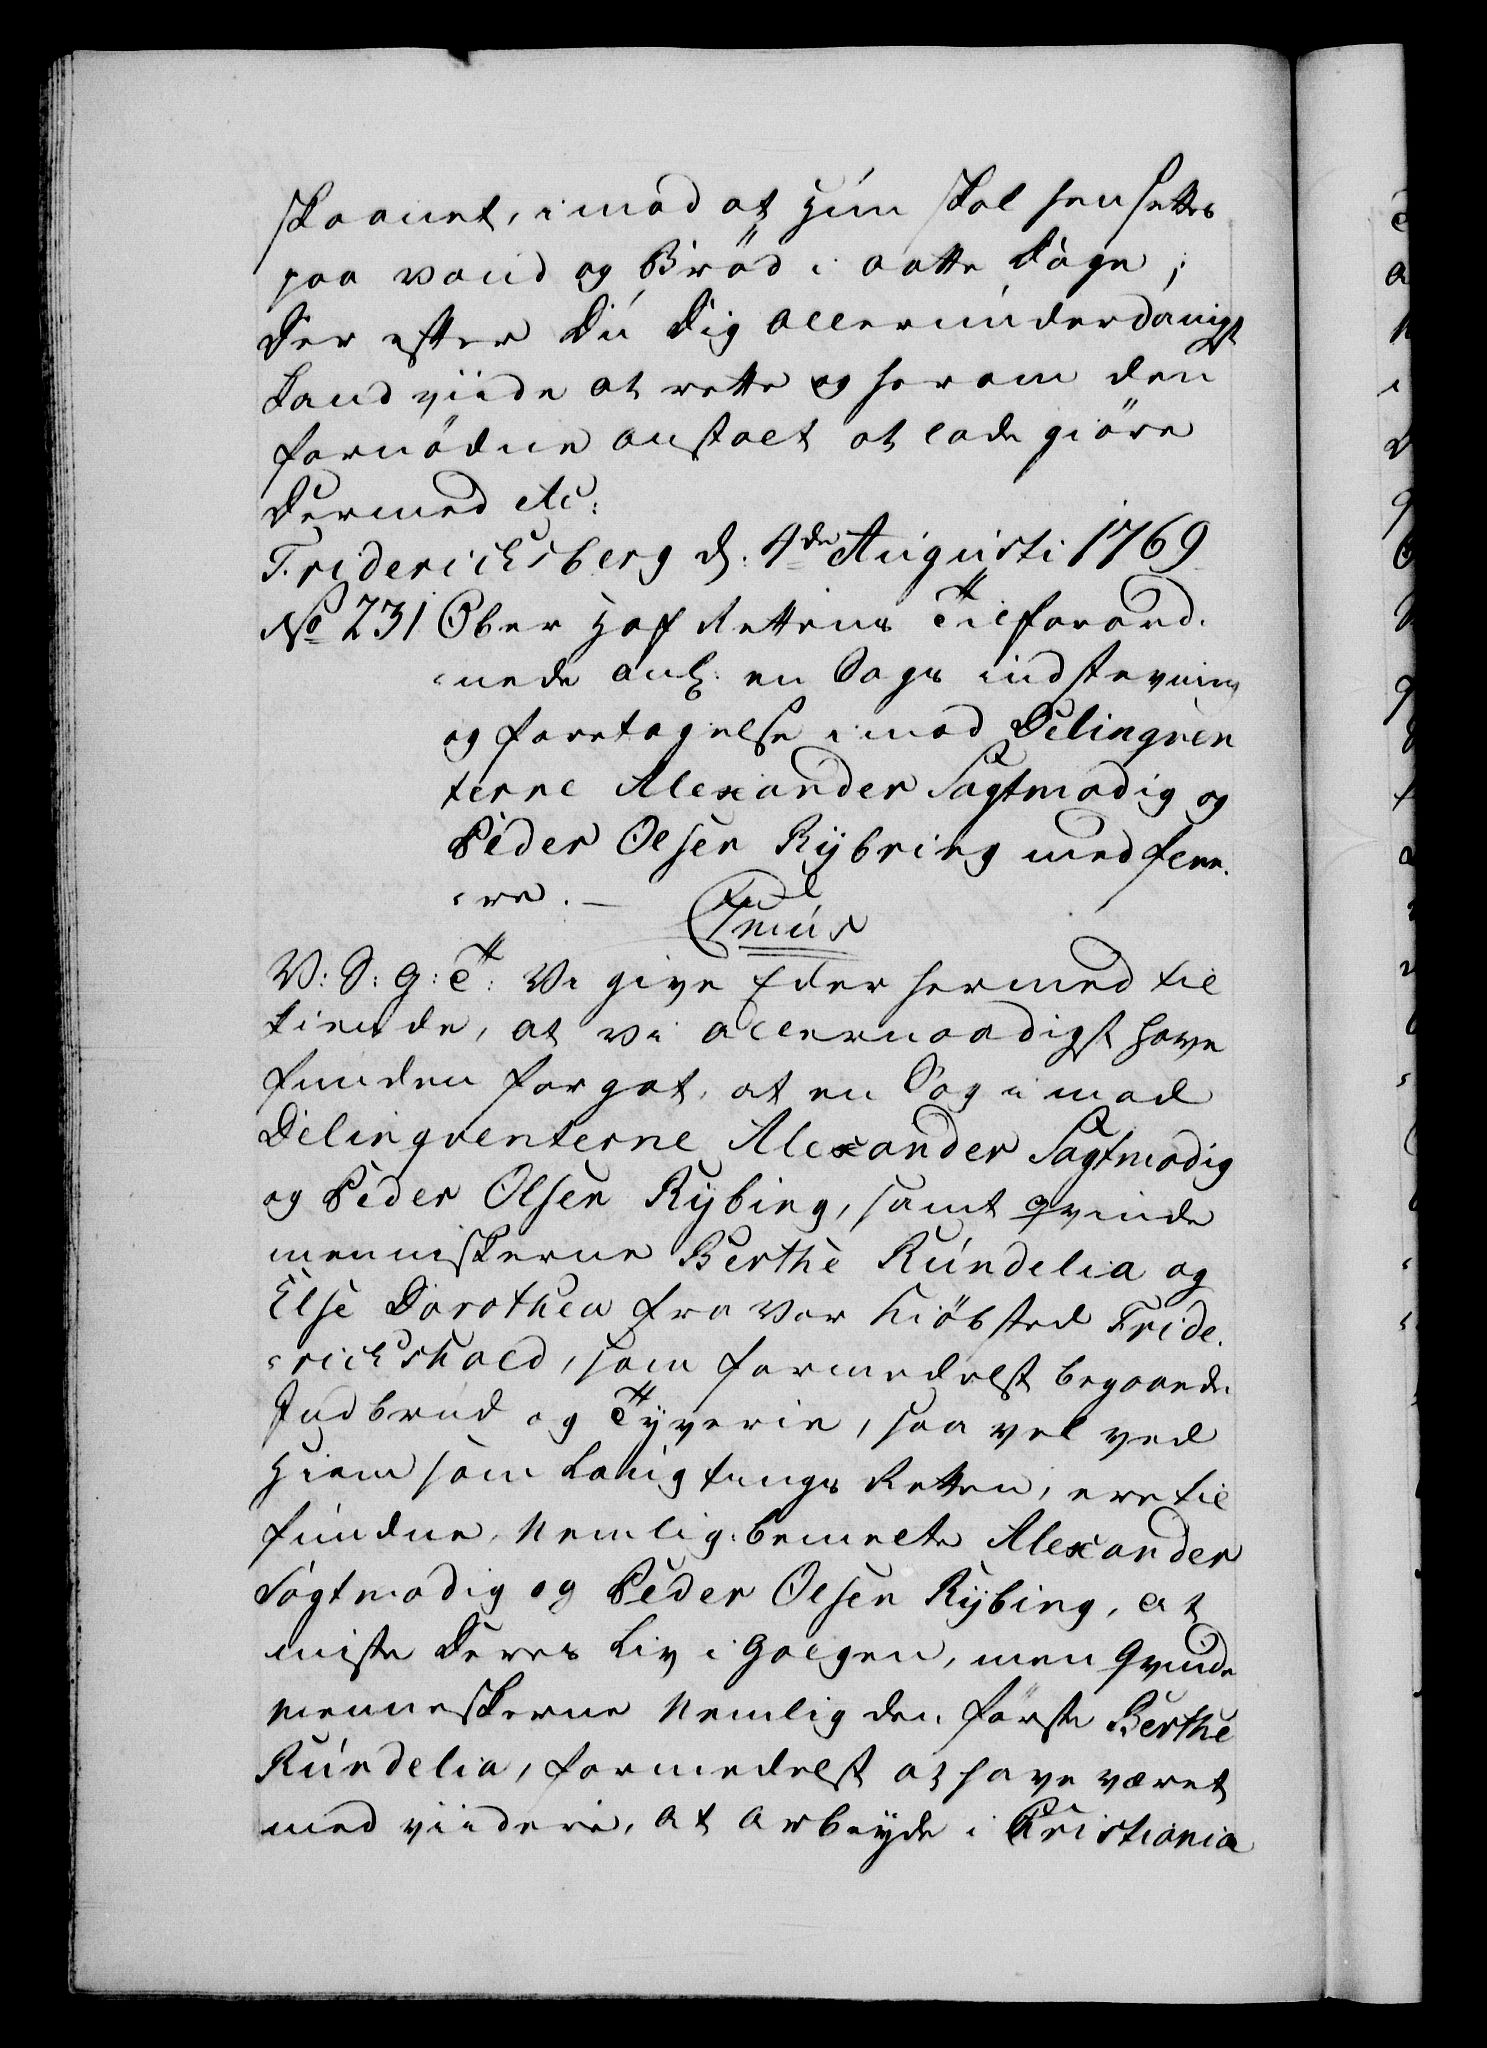 skaanet, imod at Hun skal hensettes
paa vand og Bröd i aatte Dage;
Der efter Du Dig allerunderdanigst
haver viide at rette og herom den
fornödne anstalt at lade giöre
Dermed etc:
Friderichsberg d: 4de Augusti 1769
No 231 Ober Hof Rettens Tilforord-
nede anl: en Sags indstevning
og foretagelse imod Delinqven
terne Alexander Sagtmodig og
Peder Olsen Rybring med fleer-
re. —
V: S: G: T: Vi give Eder hermed til
kiende, at vi allernaadigst have
funden for got, at en Sag imod
Delinqventerne Alexander Sagtmodig
og Peder Olsen Rybing, samt qvinde
menniskerne Berthe Rundelia og
Else Dorothea fra vor Kiöbsted Fride-
richshald, som formedelst begaaede
Indbrud og Tyverie, saa vel ved
Hiem som Laugtings Retten, ere til
fundne, Nemlig: bemelte Alexander
Sagtmodig og Peder Olsen Rybing, at
miste Deres Liv i Galgen, men Qvinde
menneskerne Nemlig den förste Berthe
Rundelia, formedelst at have været
med viidere, at arbeyde i Cristiania